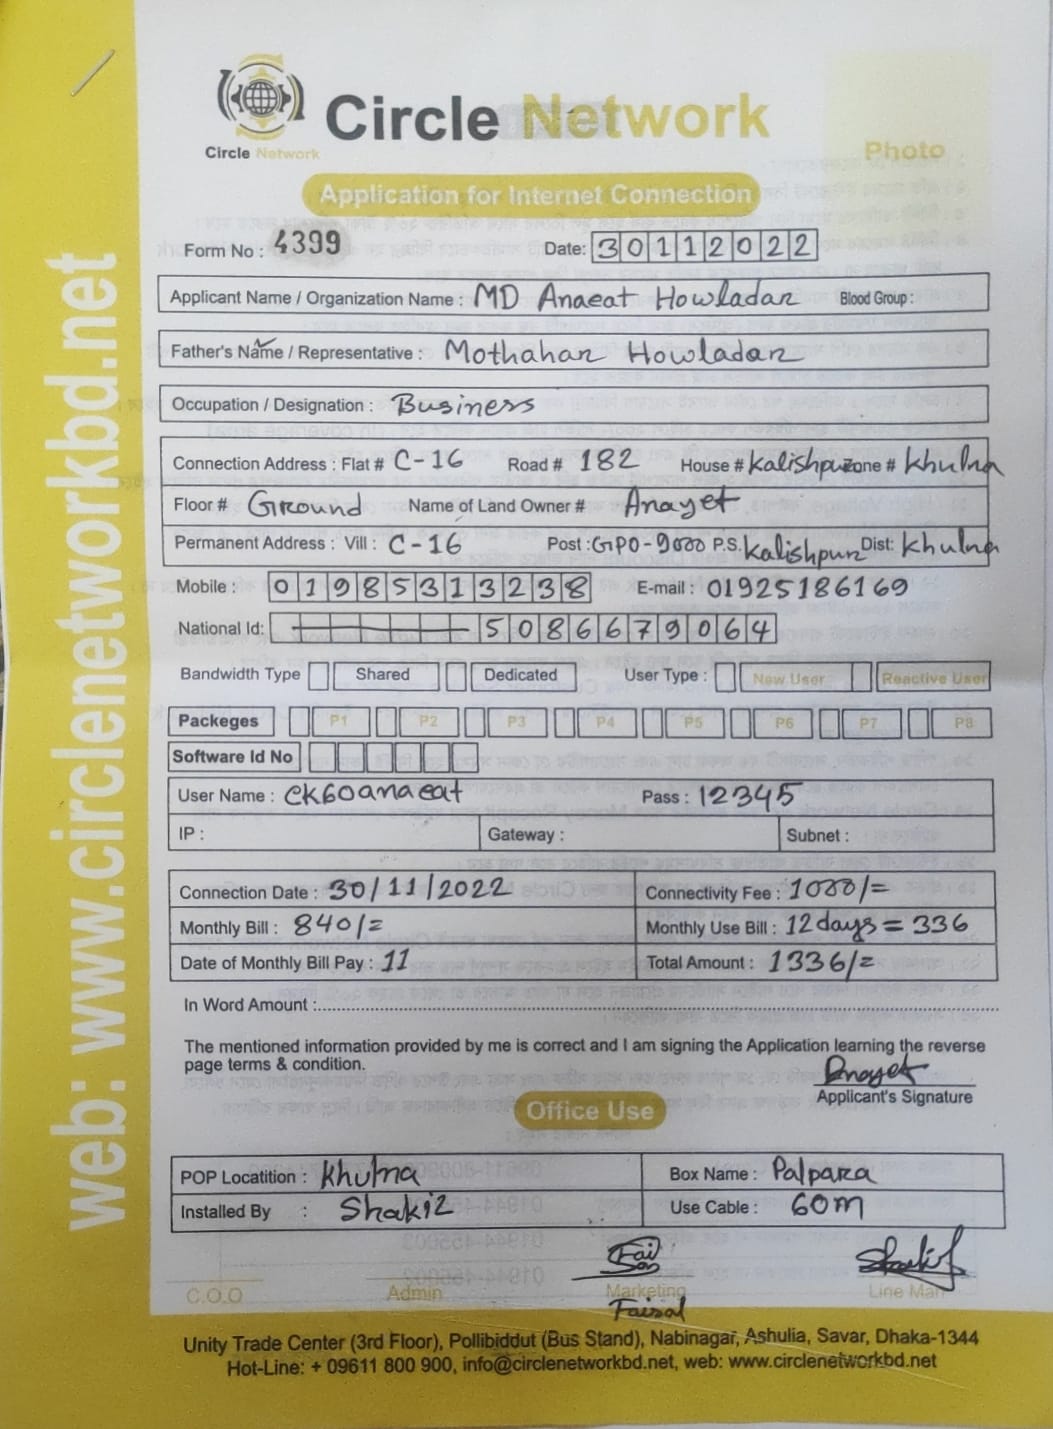 Circle Network
Circle Network
Photo
Application for Internet Connection
Form No : 4399
Date: 30112022
Applicant Name / Organization Name : MD Anaeat Howladar Blood Group :
Father's Name / Representative : Mothahar Howladar
Occupation / Designation : Business
Connection Address : Flat # C-16 Road # 182 House # Kalishpur Zone # Khulna
Floor # Ground Name of Land Owner # Anayet
Permanent Address : Vill : C-16 Post : GPO-9000 P.S. Kalishpur Dist: Khulna
Mobile : 01985313238 E-mail : 01925186169
National Id: 5086679064
Bandwidth Type Shared Dedicated User Type : New User Reactive User
Packeges P1 P2 P3 P4 P5 P6 P7 P8
Software Id No
User Name : ck60anaeat Pass : 12345
IP : Gateway : Subnet :
Connection Date : 30/11/2022 Connectivity Fee : 1000/=
Monthly Bill : 840/= Monthly Use Bill : 12 days = 336
Date of Monthly Bill Pay : 11 Total Amount : 1336/=
In Word Amount :
The mentioned information provided by me is correct and I am signing the Application learning the reverse
page terms & condition.
Anayet
Applicant's Signature
Office Use
POP Locatition : Khulna Box Name : Palpara
Installed By : Shakil Use Cable : 60m
C.O.O Admin Marketing Line Man
Faisal
Unity Trade Center (3rd Floor), Pollibiddut (Bus Stand), Nabinagar, Ashulia, Savar, Dhaka-1344
Hot-Line: + 09611 800 900, info@circlenetworkbd.net, web: www.circlenetworkbd.net
web: www.circlenetworkbd.net